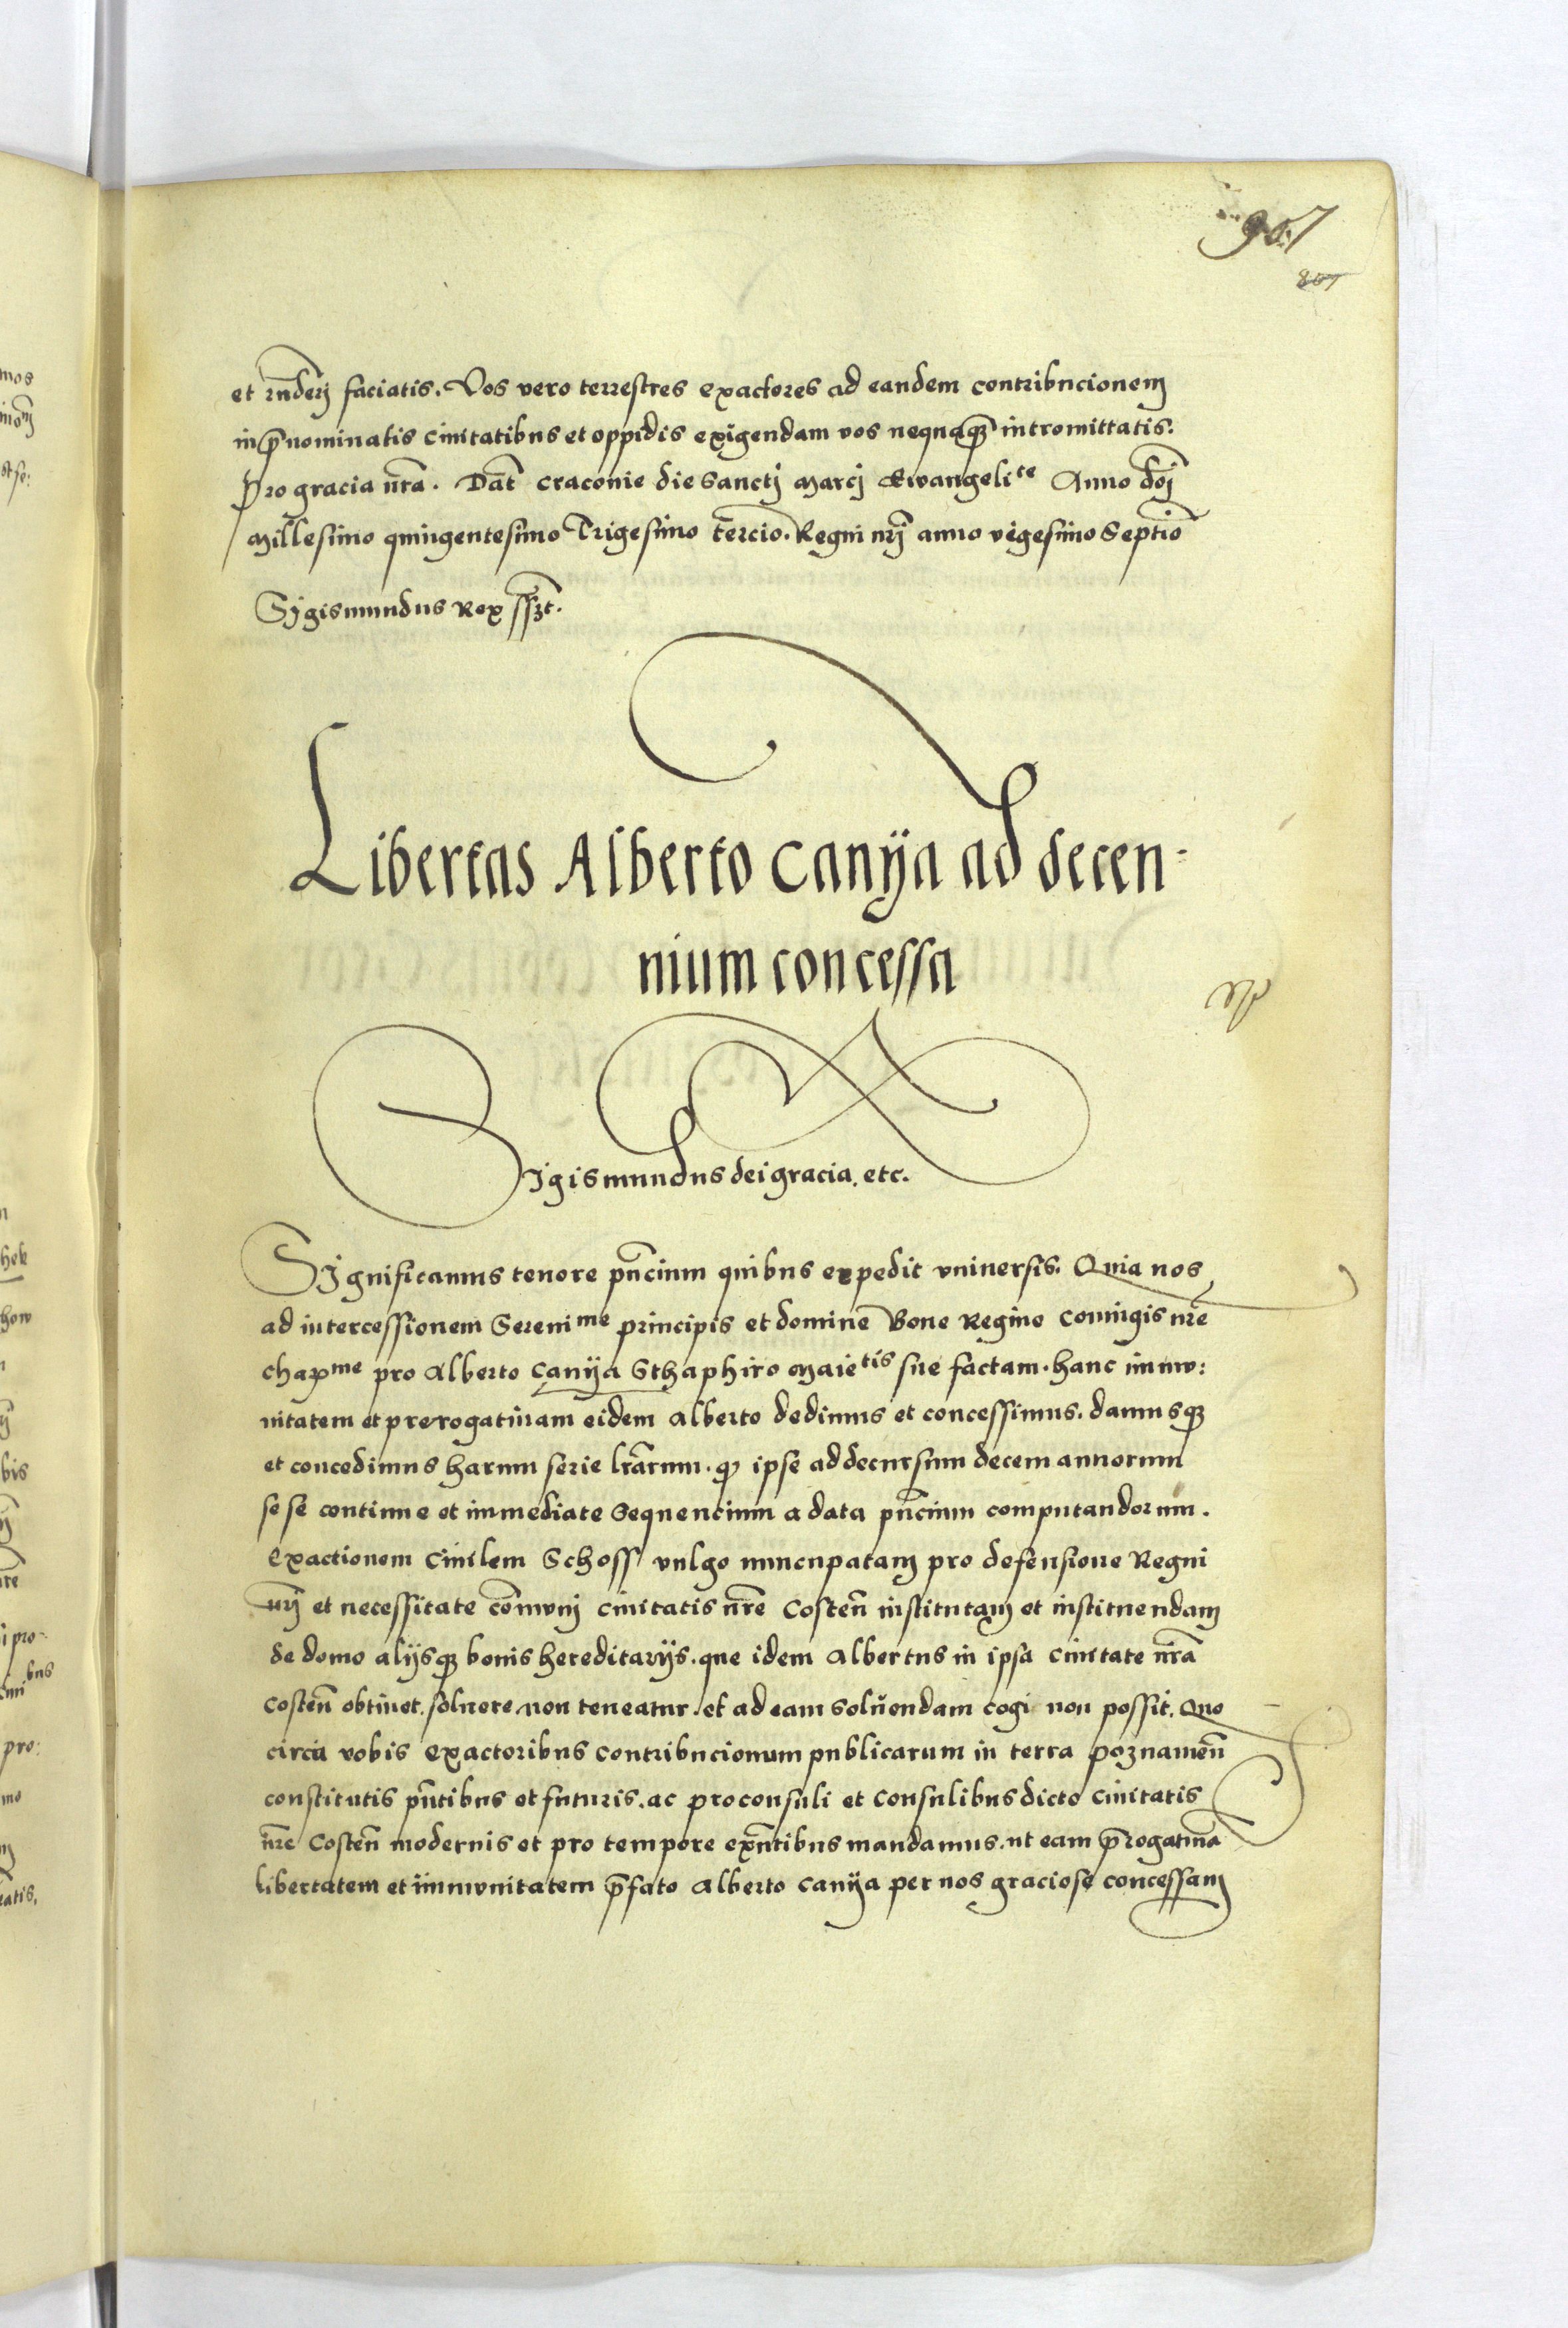 907
807
et rñderi faciatis. Vos vero terrestres exactores ad eandem contribucionem
in p̃nominatis civitatibus et oppidis exigendam vos nequaq̃ intromittatis.
Pro gracia nr̃a. Dat̃ Cracovie die Sancti Marci Ewangeliste Anno dñi
Millesimo quingentesimo Trigesimo tercio. Regni nr̃i anno vigesimo Septio͂
Sigismundus Rex sszt.
Libertas Alberto Canÿa ad decen-
nium concessa
Sigismundus dei gracia. etc.
Significamus tenore pñcium quibus expedit universis. Quia nos
ad intercessionem Serenime principis et domine Bone Regine coniugis nr̃e
charme pro Alberto Canÿa Sthaphiro Maietis sue factam. hanc immu:
nitatem et prerogativam eidem Alberto dedimus et concessimus. damusq̃
et concedimus harum serie lr̃arum. q ipse ad decursum decem annorum
sese continue et immediate Sequencium a data pñcium computandorum.
Exactionem Civilem Schoss vulgo nuncupatam pro defensione Regni
nr̃i et necessitate com̃uni civitatis nr̃e Costeñ institutam et instituendam
de domo alijsq̃ bonis hereditarijs. que idem Albertus in ipsa civitate nr̃a
Costeñ obtinet. solvere non teneatur. et ad eam solvendam cogi non possit. Quo
circa vobis Exactoribus contribucionum publicarum in terra Poznanieñ
constitutis pñtibus et futuris. ac proconsuli et Consulibus dicte Civitatis
nr̃e Costeñ modernis et pro tempore exñtibus mandamus. ut eam p̃rogativa͂
libertatem et immunitatem p̃fato Alberto Canÿa per nos graciose concessam